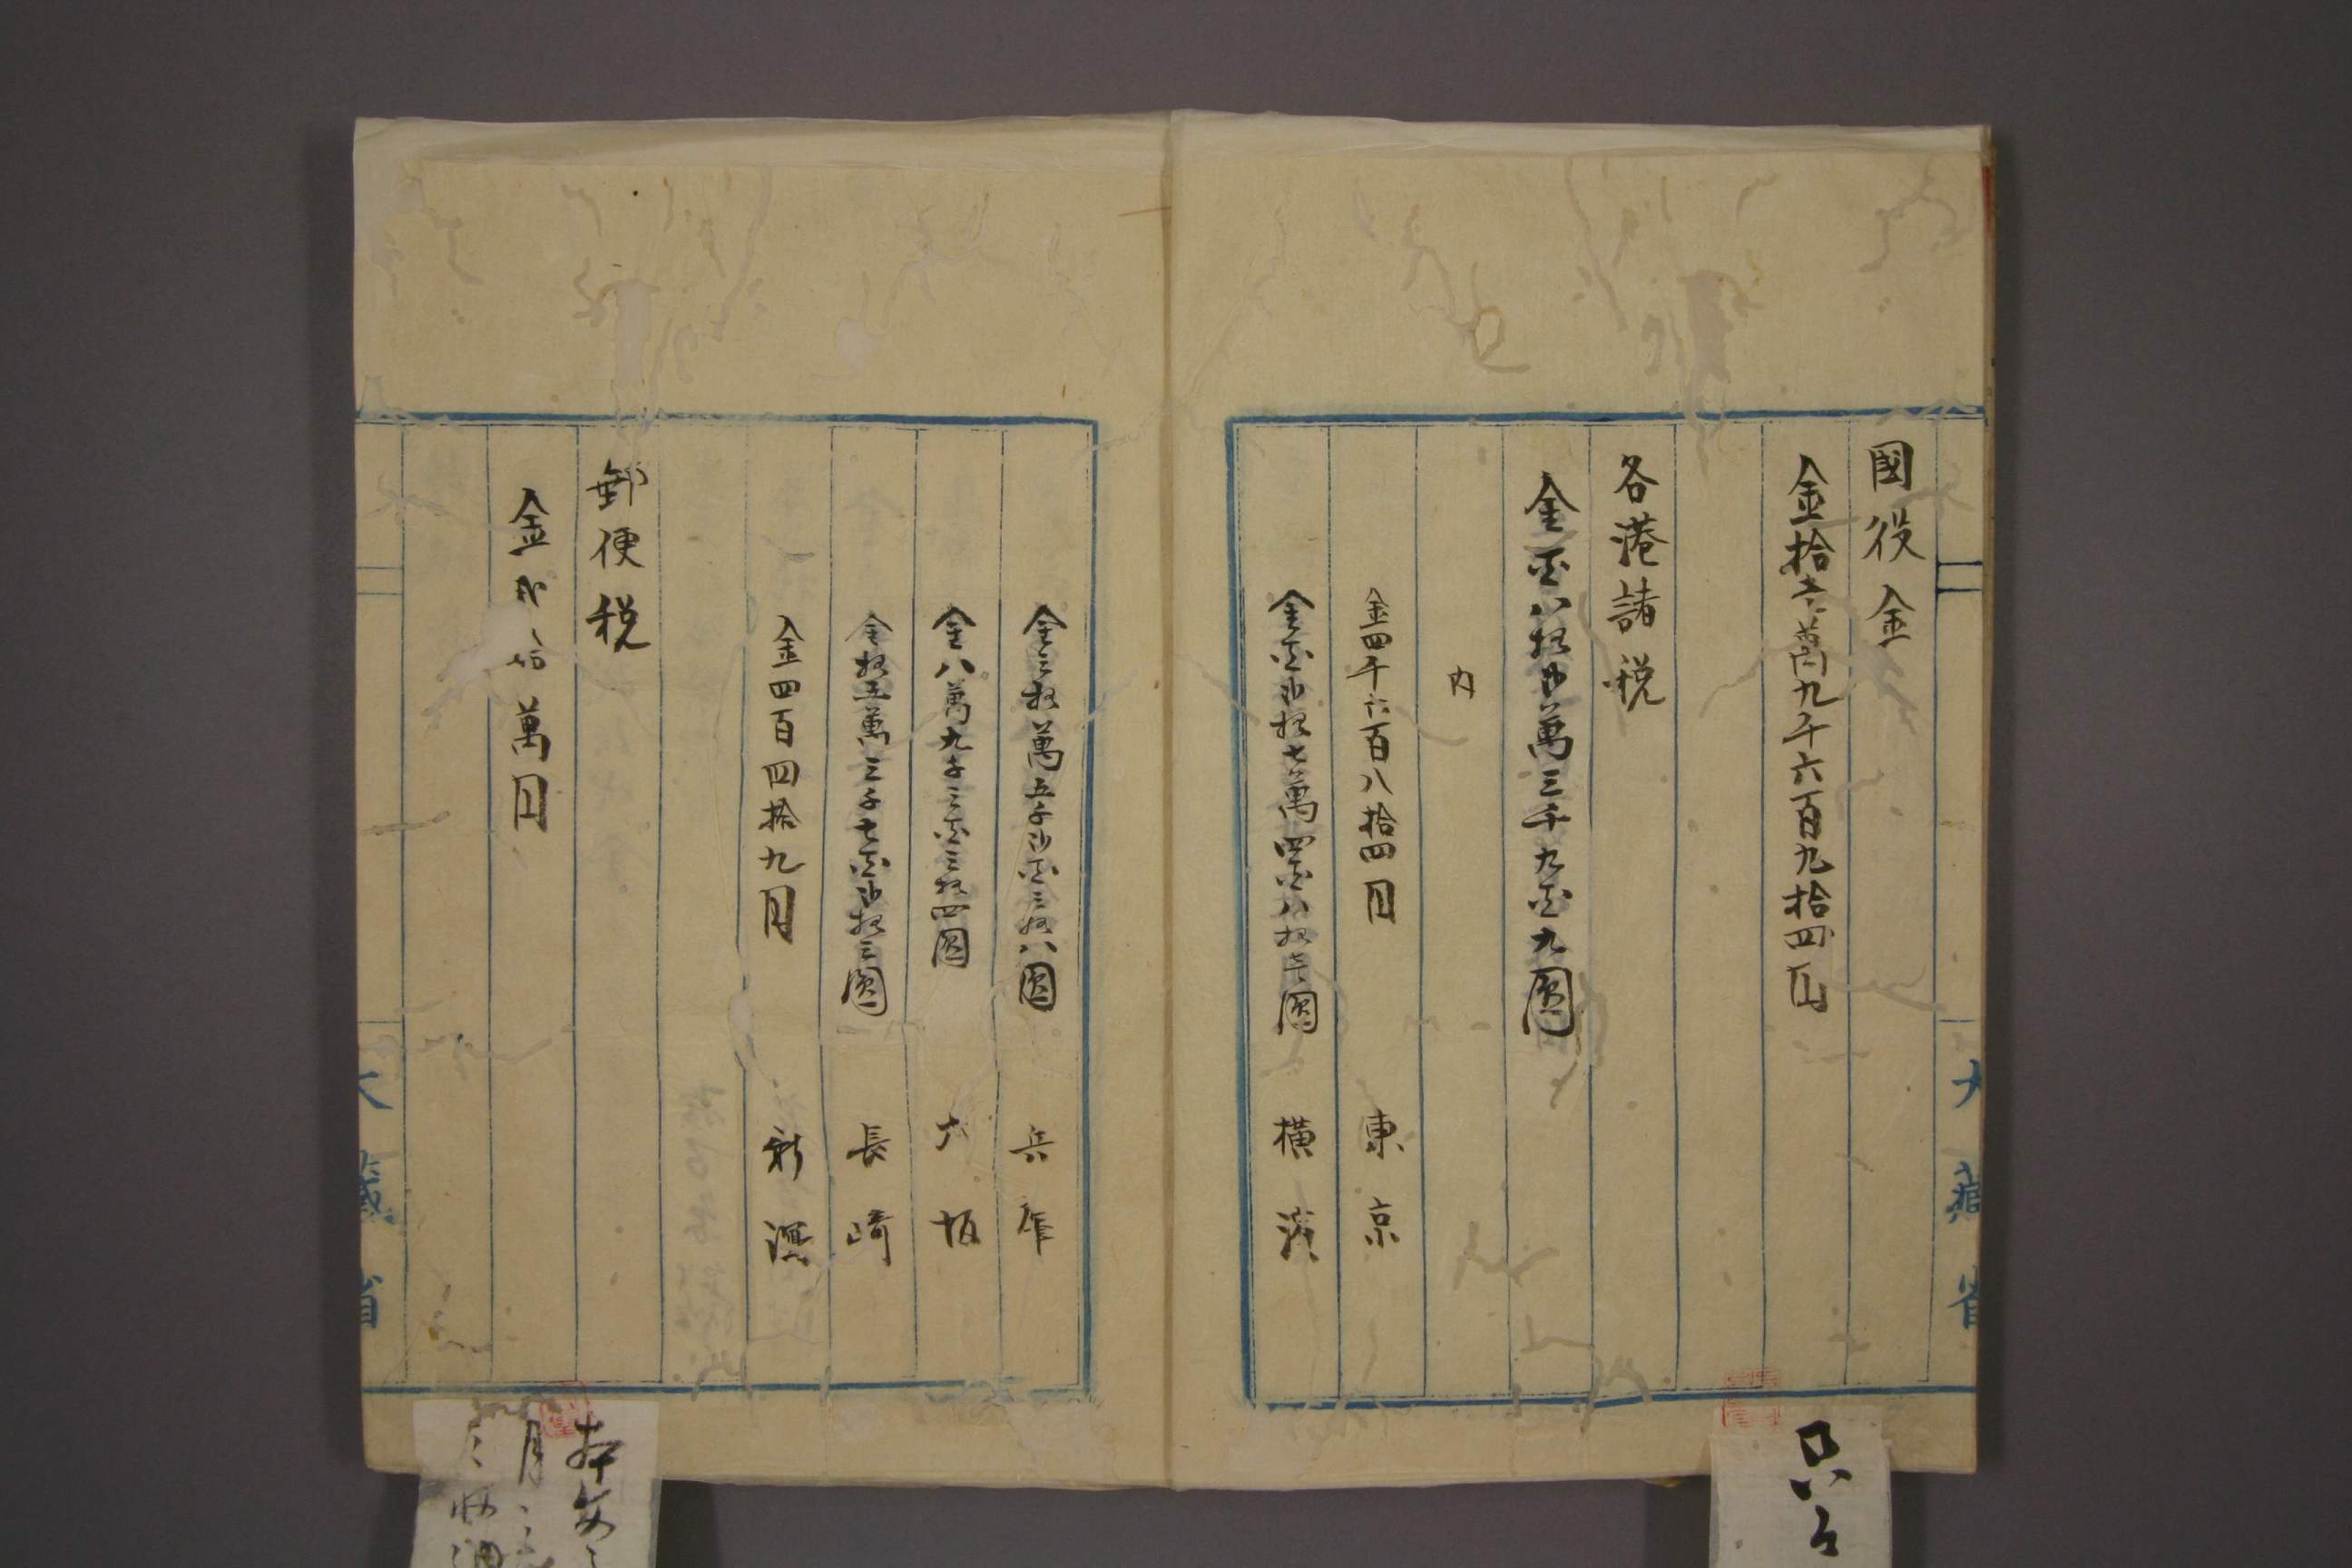 國役金
金拾壱萬九千六百九拾四円
各港諸税
金百八拾弐萬三千九百九圓
内
金四千六百八拾四円 東京
金百弐拾七萬四百八拾壱圓 横濱
大藏省
金三拾萬五千弐百三拾八圓 兵庫
金八萬九千三百三拾四圓 大坂
金拾五萬三千七百弐拾三圓 長崎
金四百四拾九円 新潟
郵便税
金弐拾萬円
大藏省